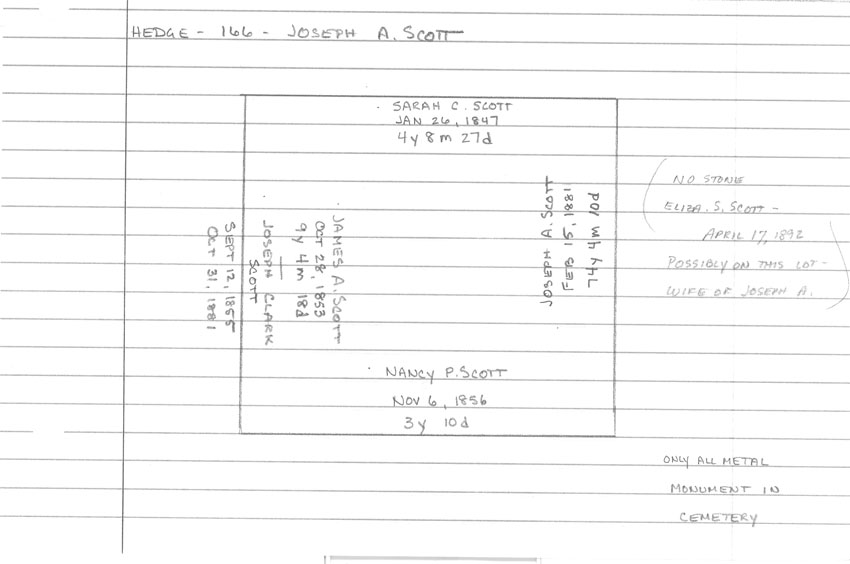 HEDGE - 166 - JOSEPH A. SCOTT
SARAH C. SCOTT
JAN 26, 1847
4y 8m 27d
JAMES A. SCOTT
OCT 28, 1853
9y 4m 18d
JOSEPH CLARK
SCOTT
SEPT 12, 1855
OCT 31, 1881
JOSEPH A. SCOTT
FEB 15, 1881
74y 4m 10d
NANCY P. SCOTT
NOV 6, 1856
3y 10d
NO STONE
ELIZA. S. SCOTT -
APRIL 17, 1892
POSSIBLY ON THIS LOT -
WIFE OF JOSEPH A.
ONLY ALL METAL
MONUMENT IN
CEMETERY